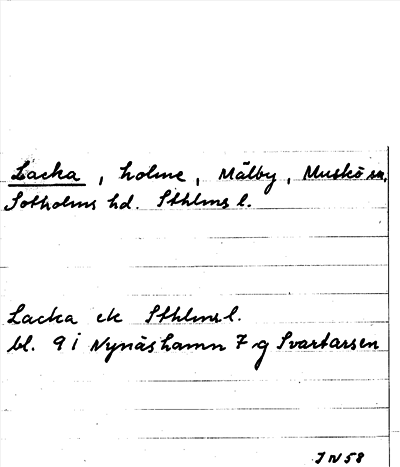 Lacka, holme, Mälby, Muskö sn,
Sotholms hd. Sthlms l.
Lacka ek Sthlms l.
bl. 9 i Nynäshamn 7 g Svartarsen
J N 58